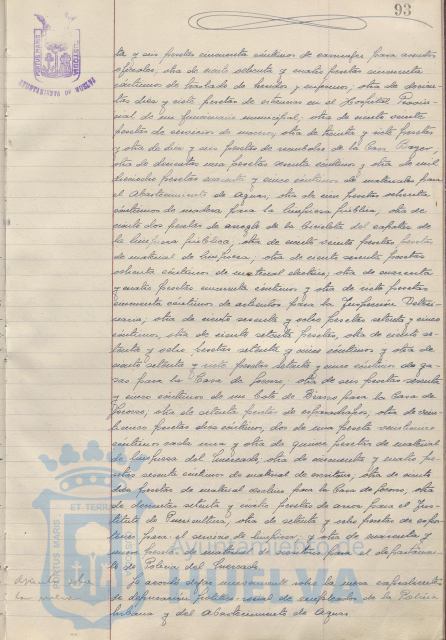 93
PORTUS MARIS
AYUNTAMIENTO DE HUELVA
ta y seis pesetas cincuenta céntimos de carruajes para asuntos
oficiales, otra de ciento ochenta y cuatro pesetas cincuenta
céntimos de traslado de heridos y enfermos, otra de doscien-
tas diez y siete pesetas de estancias en el Hospital Provin-
cial de un funcionario municipal; otra de ciento veinte
pesetas de servicios de, otra de treinta y siete pesetas
y otra de diez y seis pesetas de
otra de doscientas una pesetas sesenta céntimos y otra de mil
dieciocho pesetas cuarenta y cinco céntimos de materiales para
el Abastecimiento de Aguas, otra de seis pesetas ochenta
céntimos de madera para la limpieza pública, otra de
ciento dos pesetas de arreglo de la bicicleta del capataz de
la limpieza pública, otra de ciento sesenta pesetas
de material de limpieza; otra de ciento sesenta pesetas
ochenta céntimos de material eléctrico; otra de cuarenta
y cuatro pesetas cincuenta céntimos y otra de siete pesetas
cincuenta céntimos de artículos para la Inspección Veteri-
naria; otra de ciento sesenta y ocho pesetas setenta y cinco
céntimos, otra de ciento setenta pesetas, otra de ciento se-
tenta y ocho pesetas setenta y cinco céntimos y otra de
ciento setenta y siete pesetas setenta y cinco céntimos de ga-
sas para la Casa de Socorro; otra de seis pesetas sesenta
y cinco céntimos de un bote de para la Casa de
Socorro; otra de setenta pesetas de esparadrapos, otra de vein-
tiuna pesetas diez céntimos, dos de una peseta
céntimos cada una y otra de quince pesetas de material
de limpieza del Mercado; otra de cincuenta y cuatro pe-
setas sesenta céntimos de material de, otra de ciento
diez pesetas de material para la Casa de Socorro, otra
de doscientas setenta y cuatro pesetas de para el Ins-
tituto de Puericultura, otra de setenta y ocho pesetas de
para el servicio de limpieza y otra de cuarenta y
cinco pesetas de material de escritorio para el departamen-
to de Policía del Mercado.
Se acordó dejar nuevamente sobre la mesa expedientes
de depuración político-social de empleados de la Policía
Urbana y del Abastecimiento de Aguas.
ET TERRÆ
PORTUS MARIS
Ayuntamiento de
HUELVA